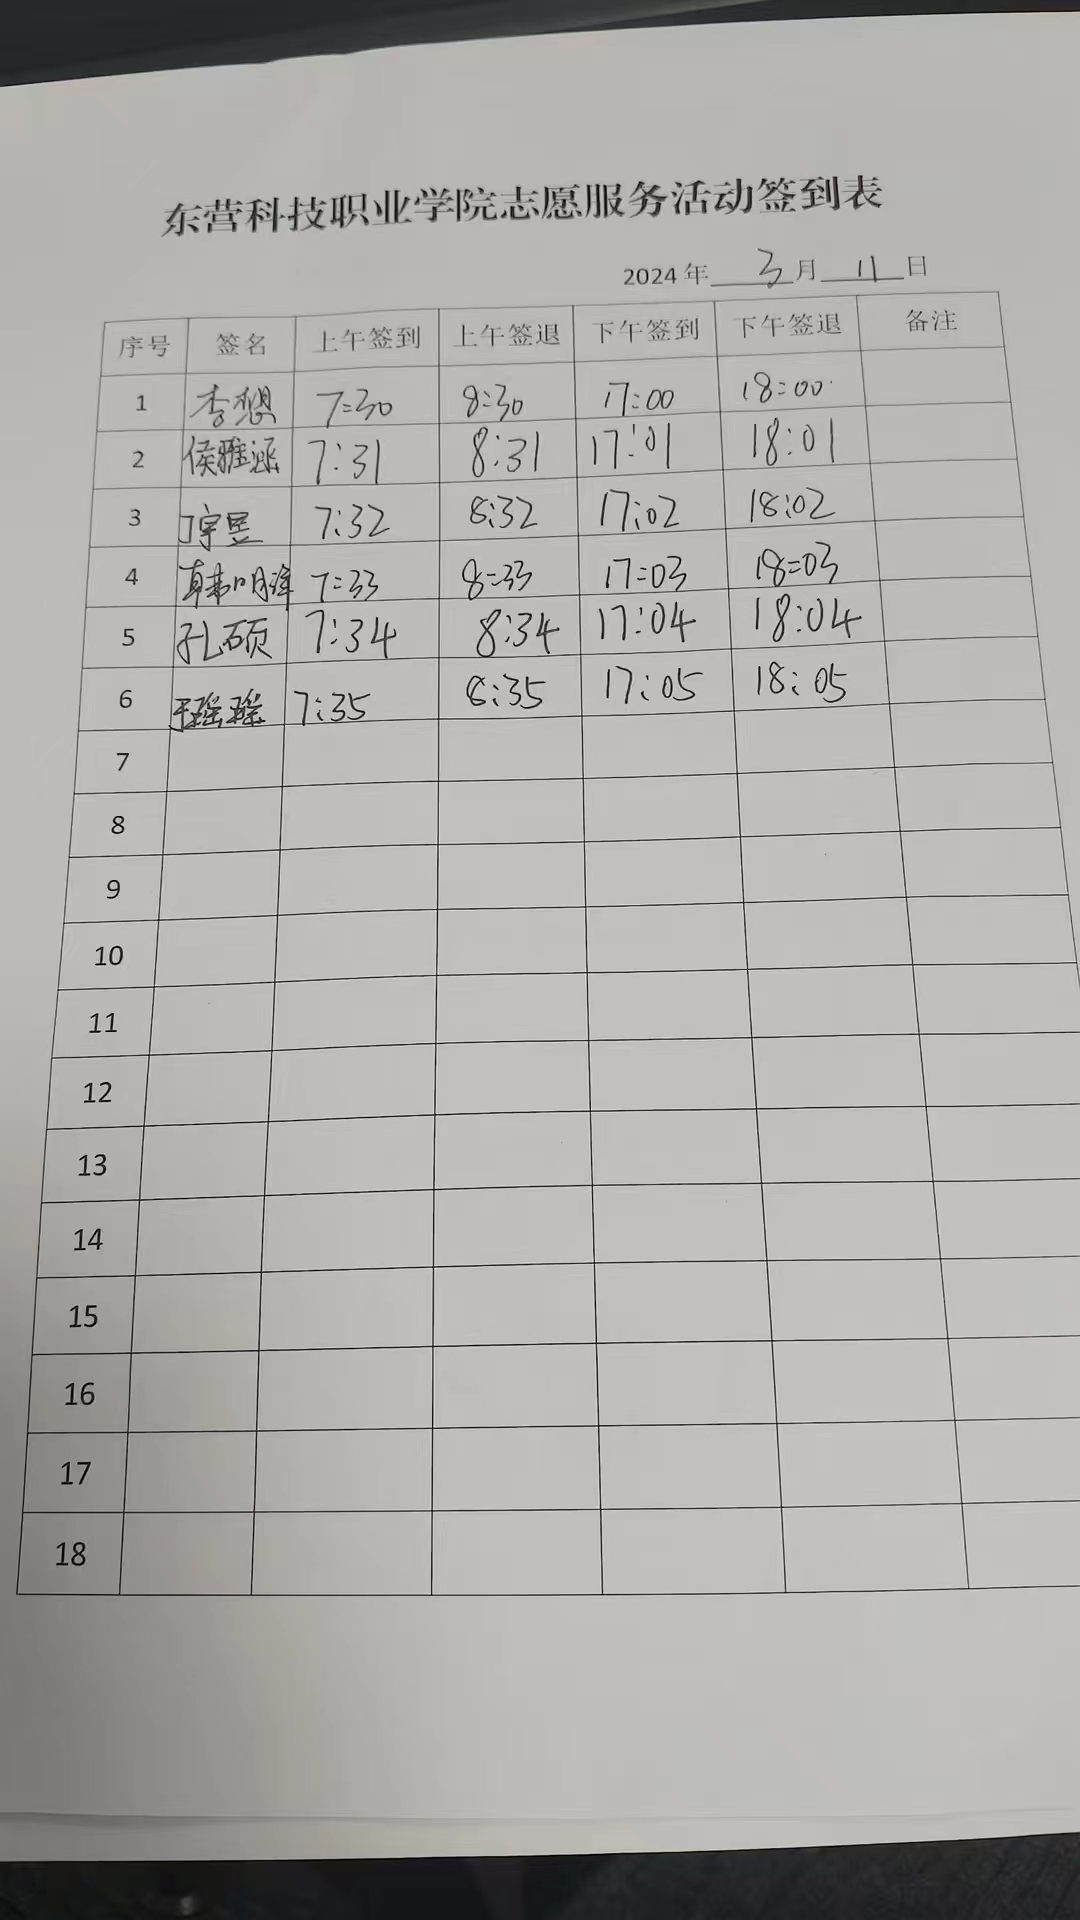 东营科技职业学院志愿服务活动签到表
2024年 3 月 11 日
序号 签名 上午签到 上午签退 下午签到 下午签退 备注
1 李想 7:30 8:30 17:00 18:00
2 侯雅涵 7:31 8:31 17:01 18:01
3 丁宇昱 7:32 8:32 17:02 18:02
4 韩明泽 7:33 8:33 17:03 18:03
5 孔硕 7:34 8:34 17:04 18:04
6 瑶瑶 7:35 8:35 17:05 18:05
7
8
9
10
11
12
13
14
15
16
17
18